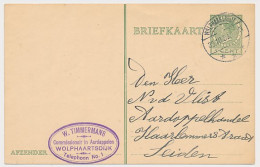 BRIEFKAART
W. TIMMERMANS
Commissionair in Aardappelen
WOLPHAARTSDIJK
Telephoon No. 1
AFZENDER
Den Heer
N. v. d. Vlist
Aardappelhandel
Haarlemmerstraat
Leiden